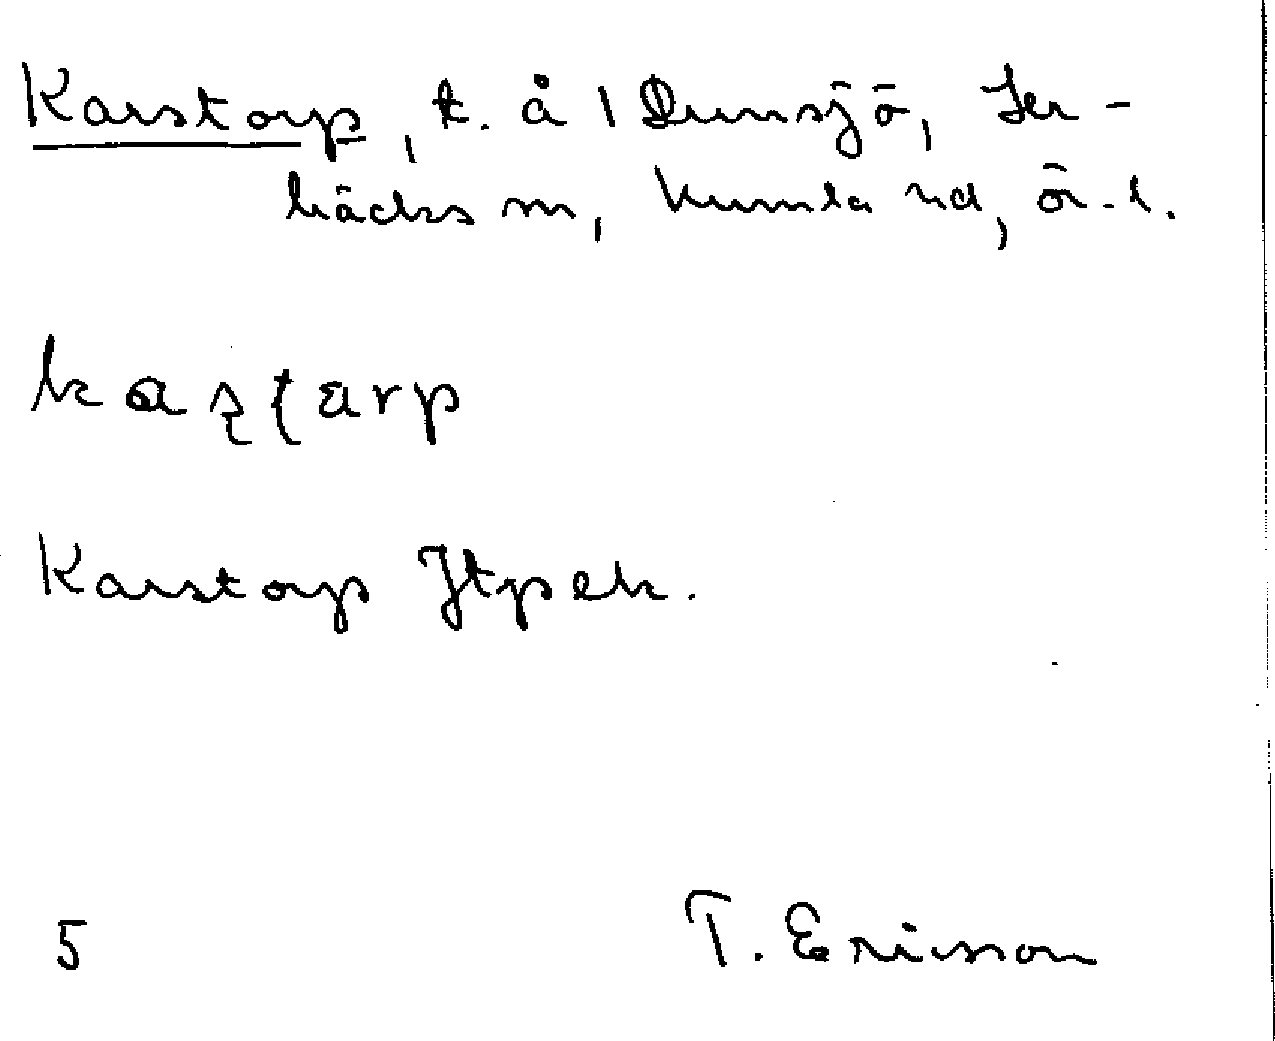 Karstorp, t. å 1 Dunsjö, Ler-
bäcks sn, Kumla hd, ö-l.
kaʂʈarp
Karstorp Jtpek.
5 T. Ericsson